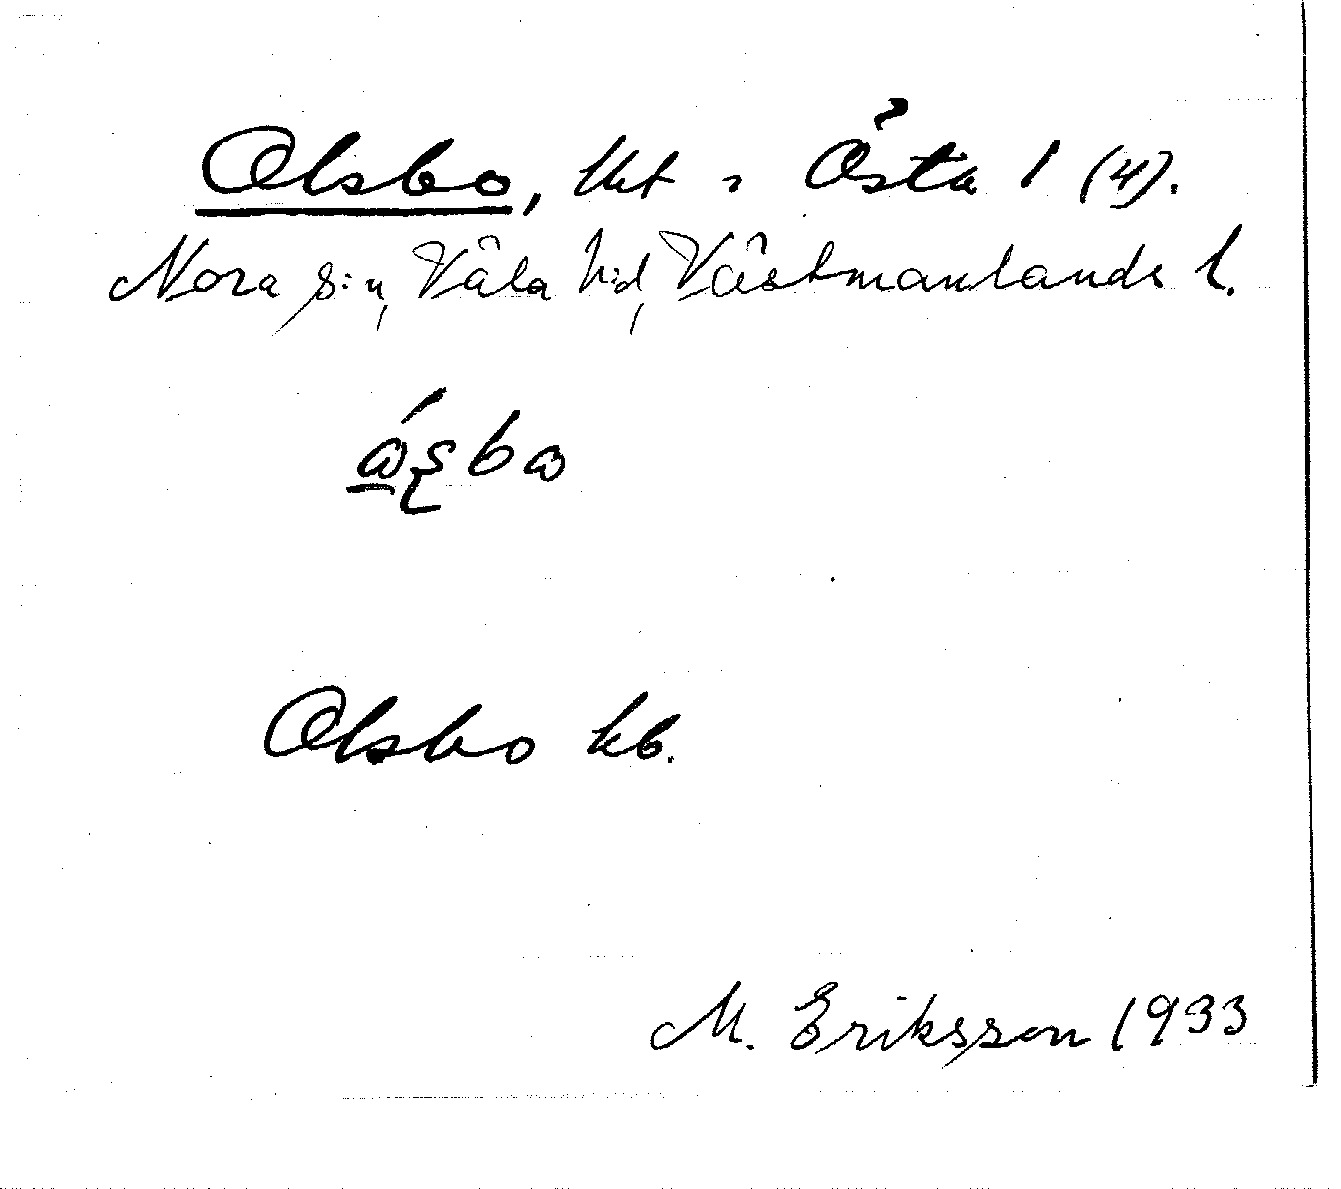 Olsbo, lht i Östa 1 (4).
Nora s:n, Våla hd, Västmanlands l.
Olsbo kb.
M. Eriksson 1933